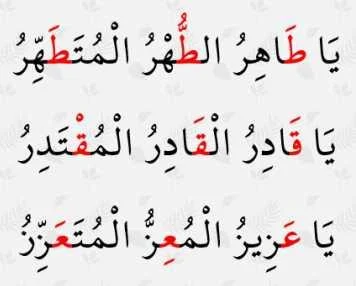 يَا طَاهِرُ الطُّهْرُ الْمُتَطَهِّرُ
يَا قَادِرُ الْقَادِرُ الْمُقْتَدِرُ
يَا عَزِيزُ الْمُعِزُّ الْمُتَعَزِّزُ